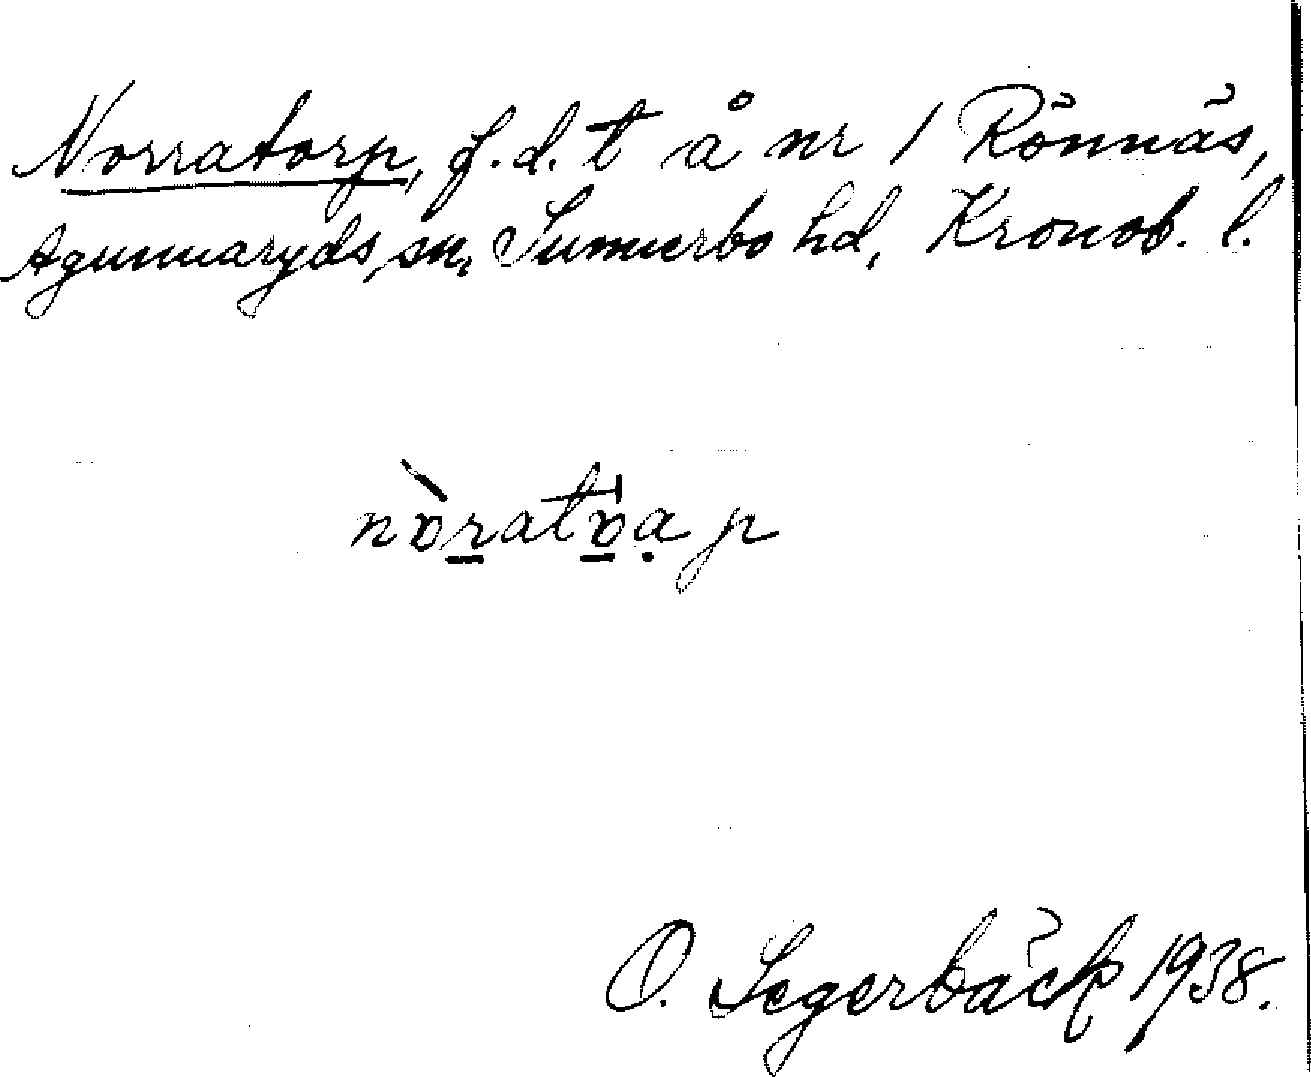 Norratorp, f.d. t å nr 1 Rönnäs,
Agunnaryds sn, Sunnerbo hd, Kronob. l.
nòratɒap
O. Segerbäck 1938.